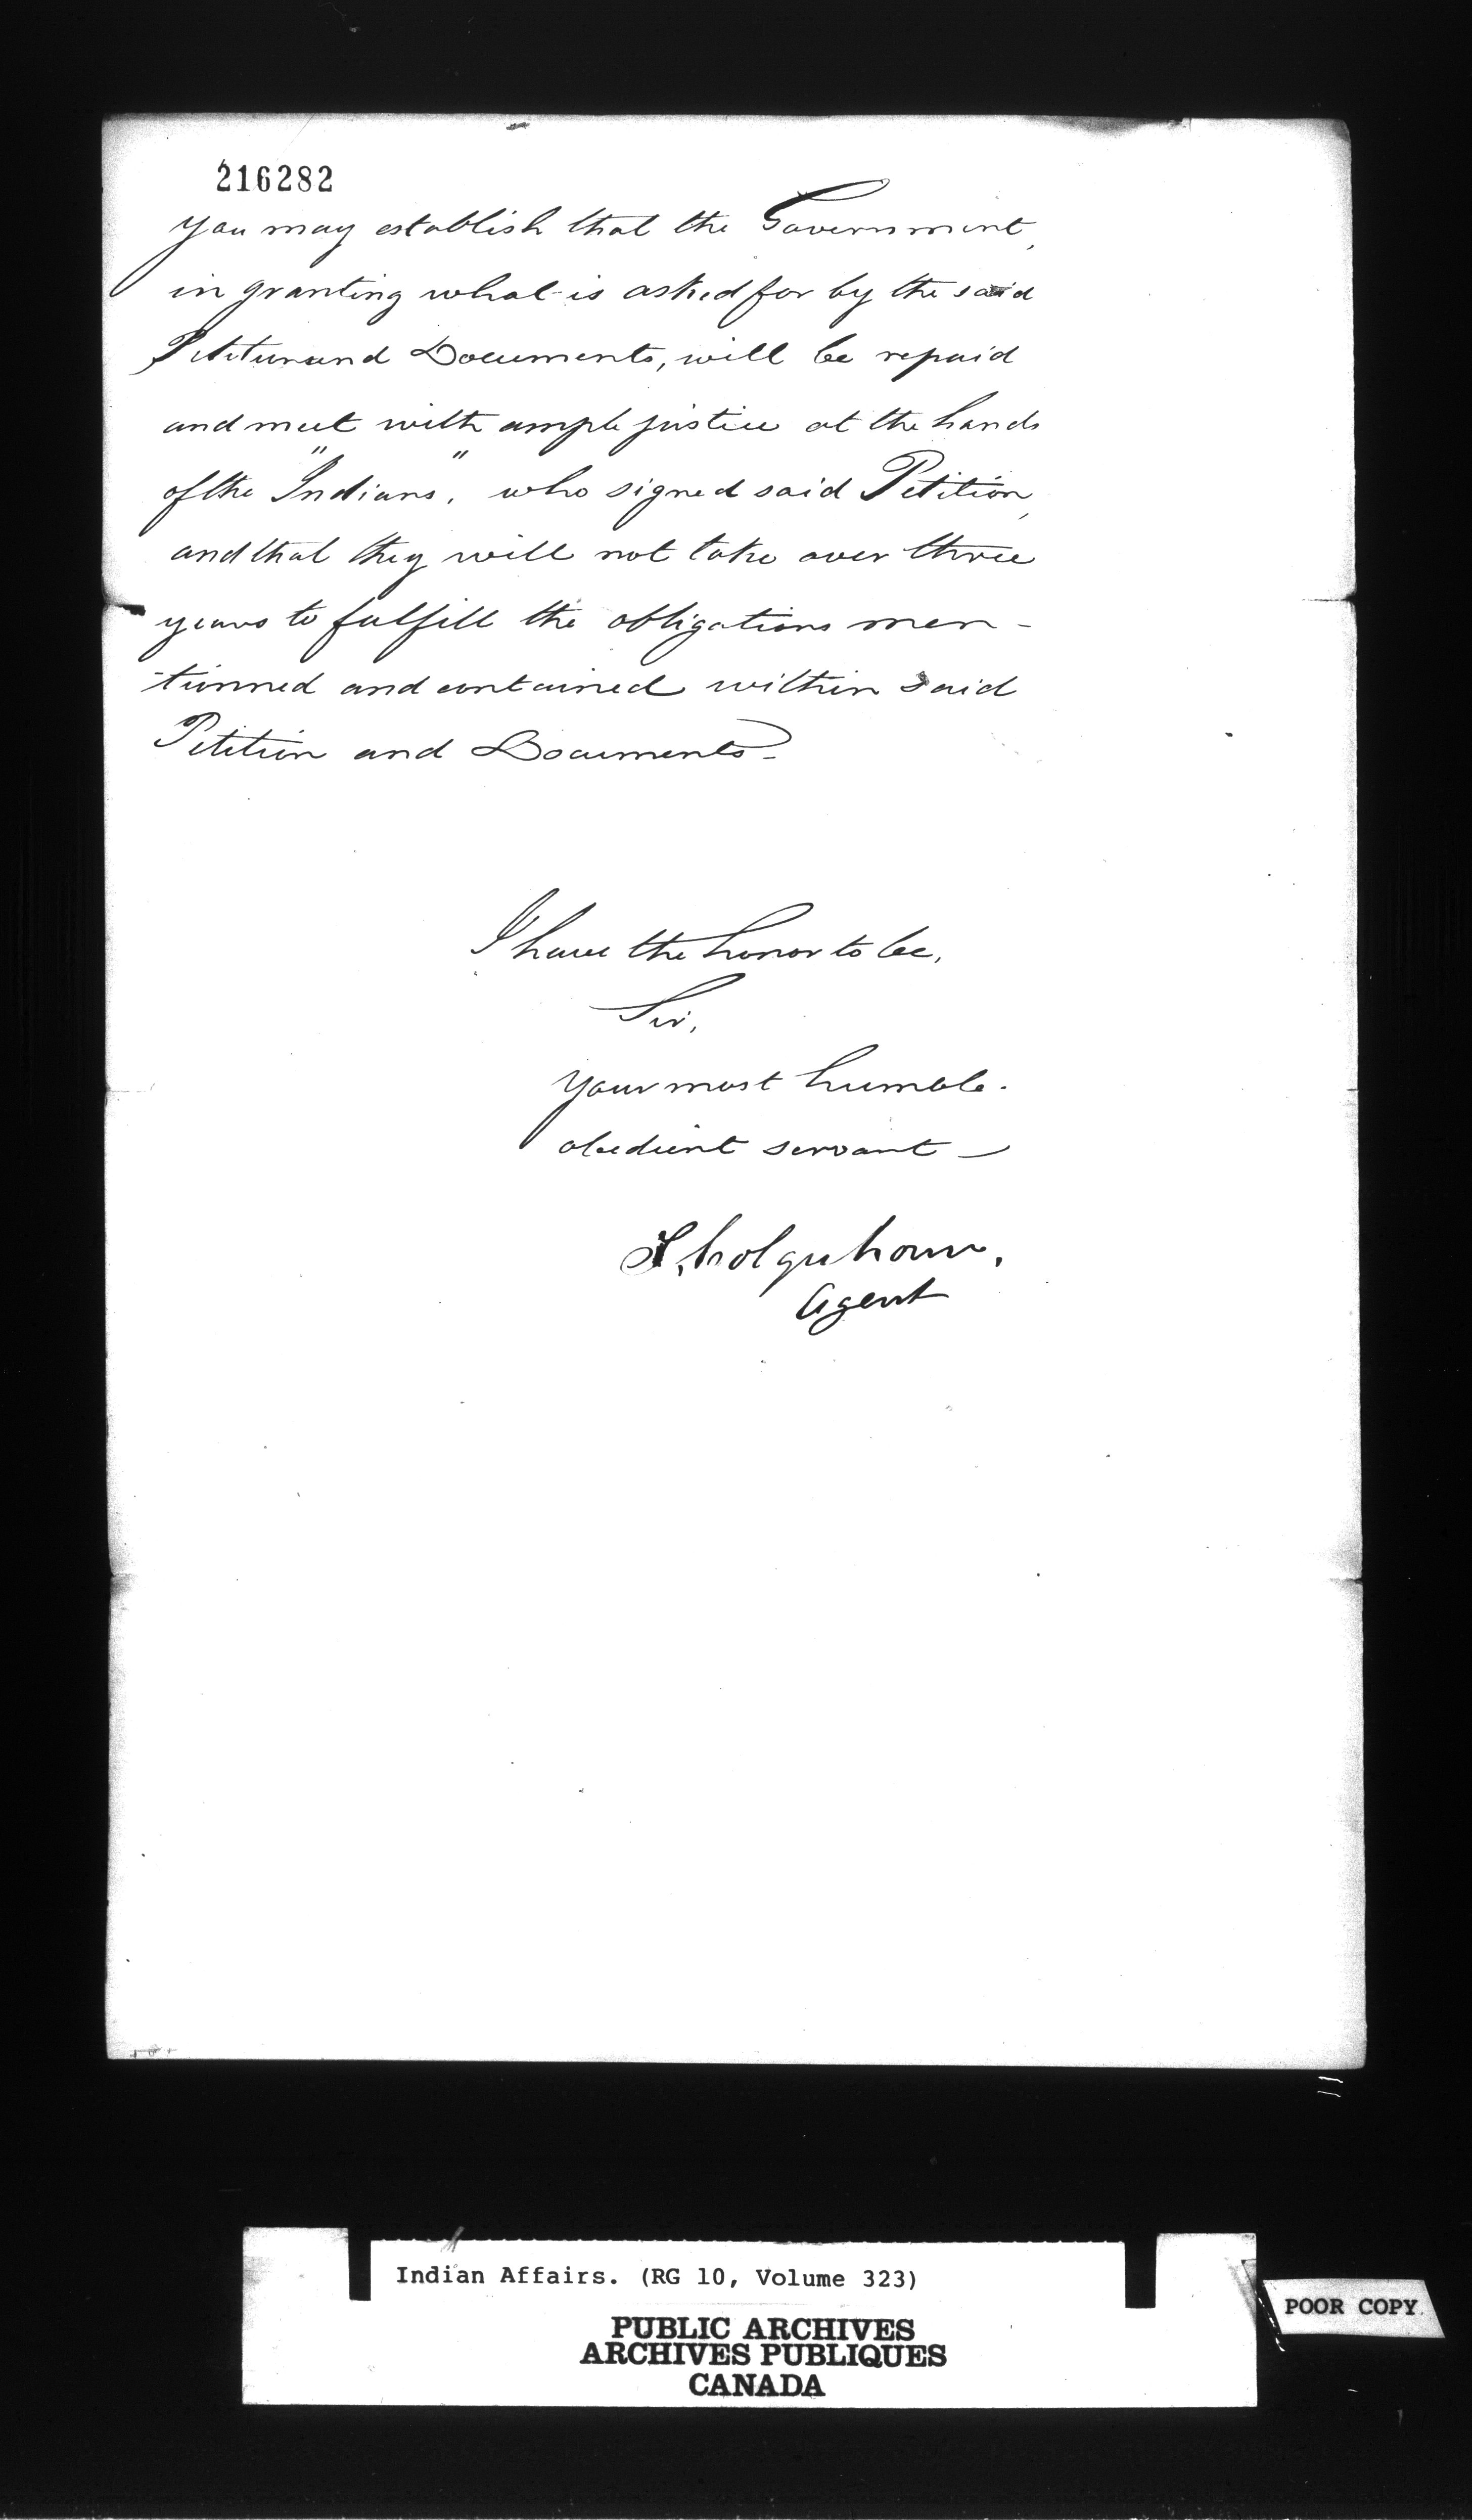 216282
you may establish that the Government,
in granting what is asked for by the said
Petition and Documents, will be repaid
and meet with ample justice at the hands
of the "Indians," who signed said Petition,
and that they will not take over three
years to fulfill the obligations men-
-tionned and contained within said
Petition and Documents.
I have the honor to be,
Sir,
your most humble.
obedient servant —
Colquhoun,
Agent
Indian Affairs. (RG 10, Volume 323)
PUBLIC ARCHIVES
ARCHIVES PUBLIQUES
CANADA
POOR COPY